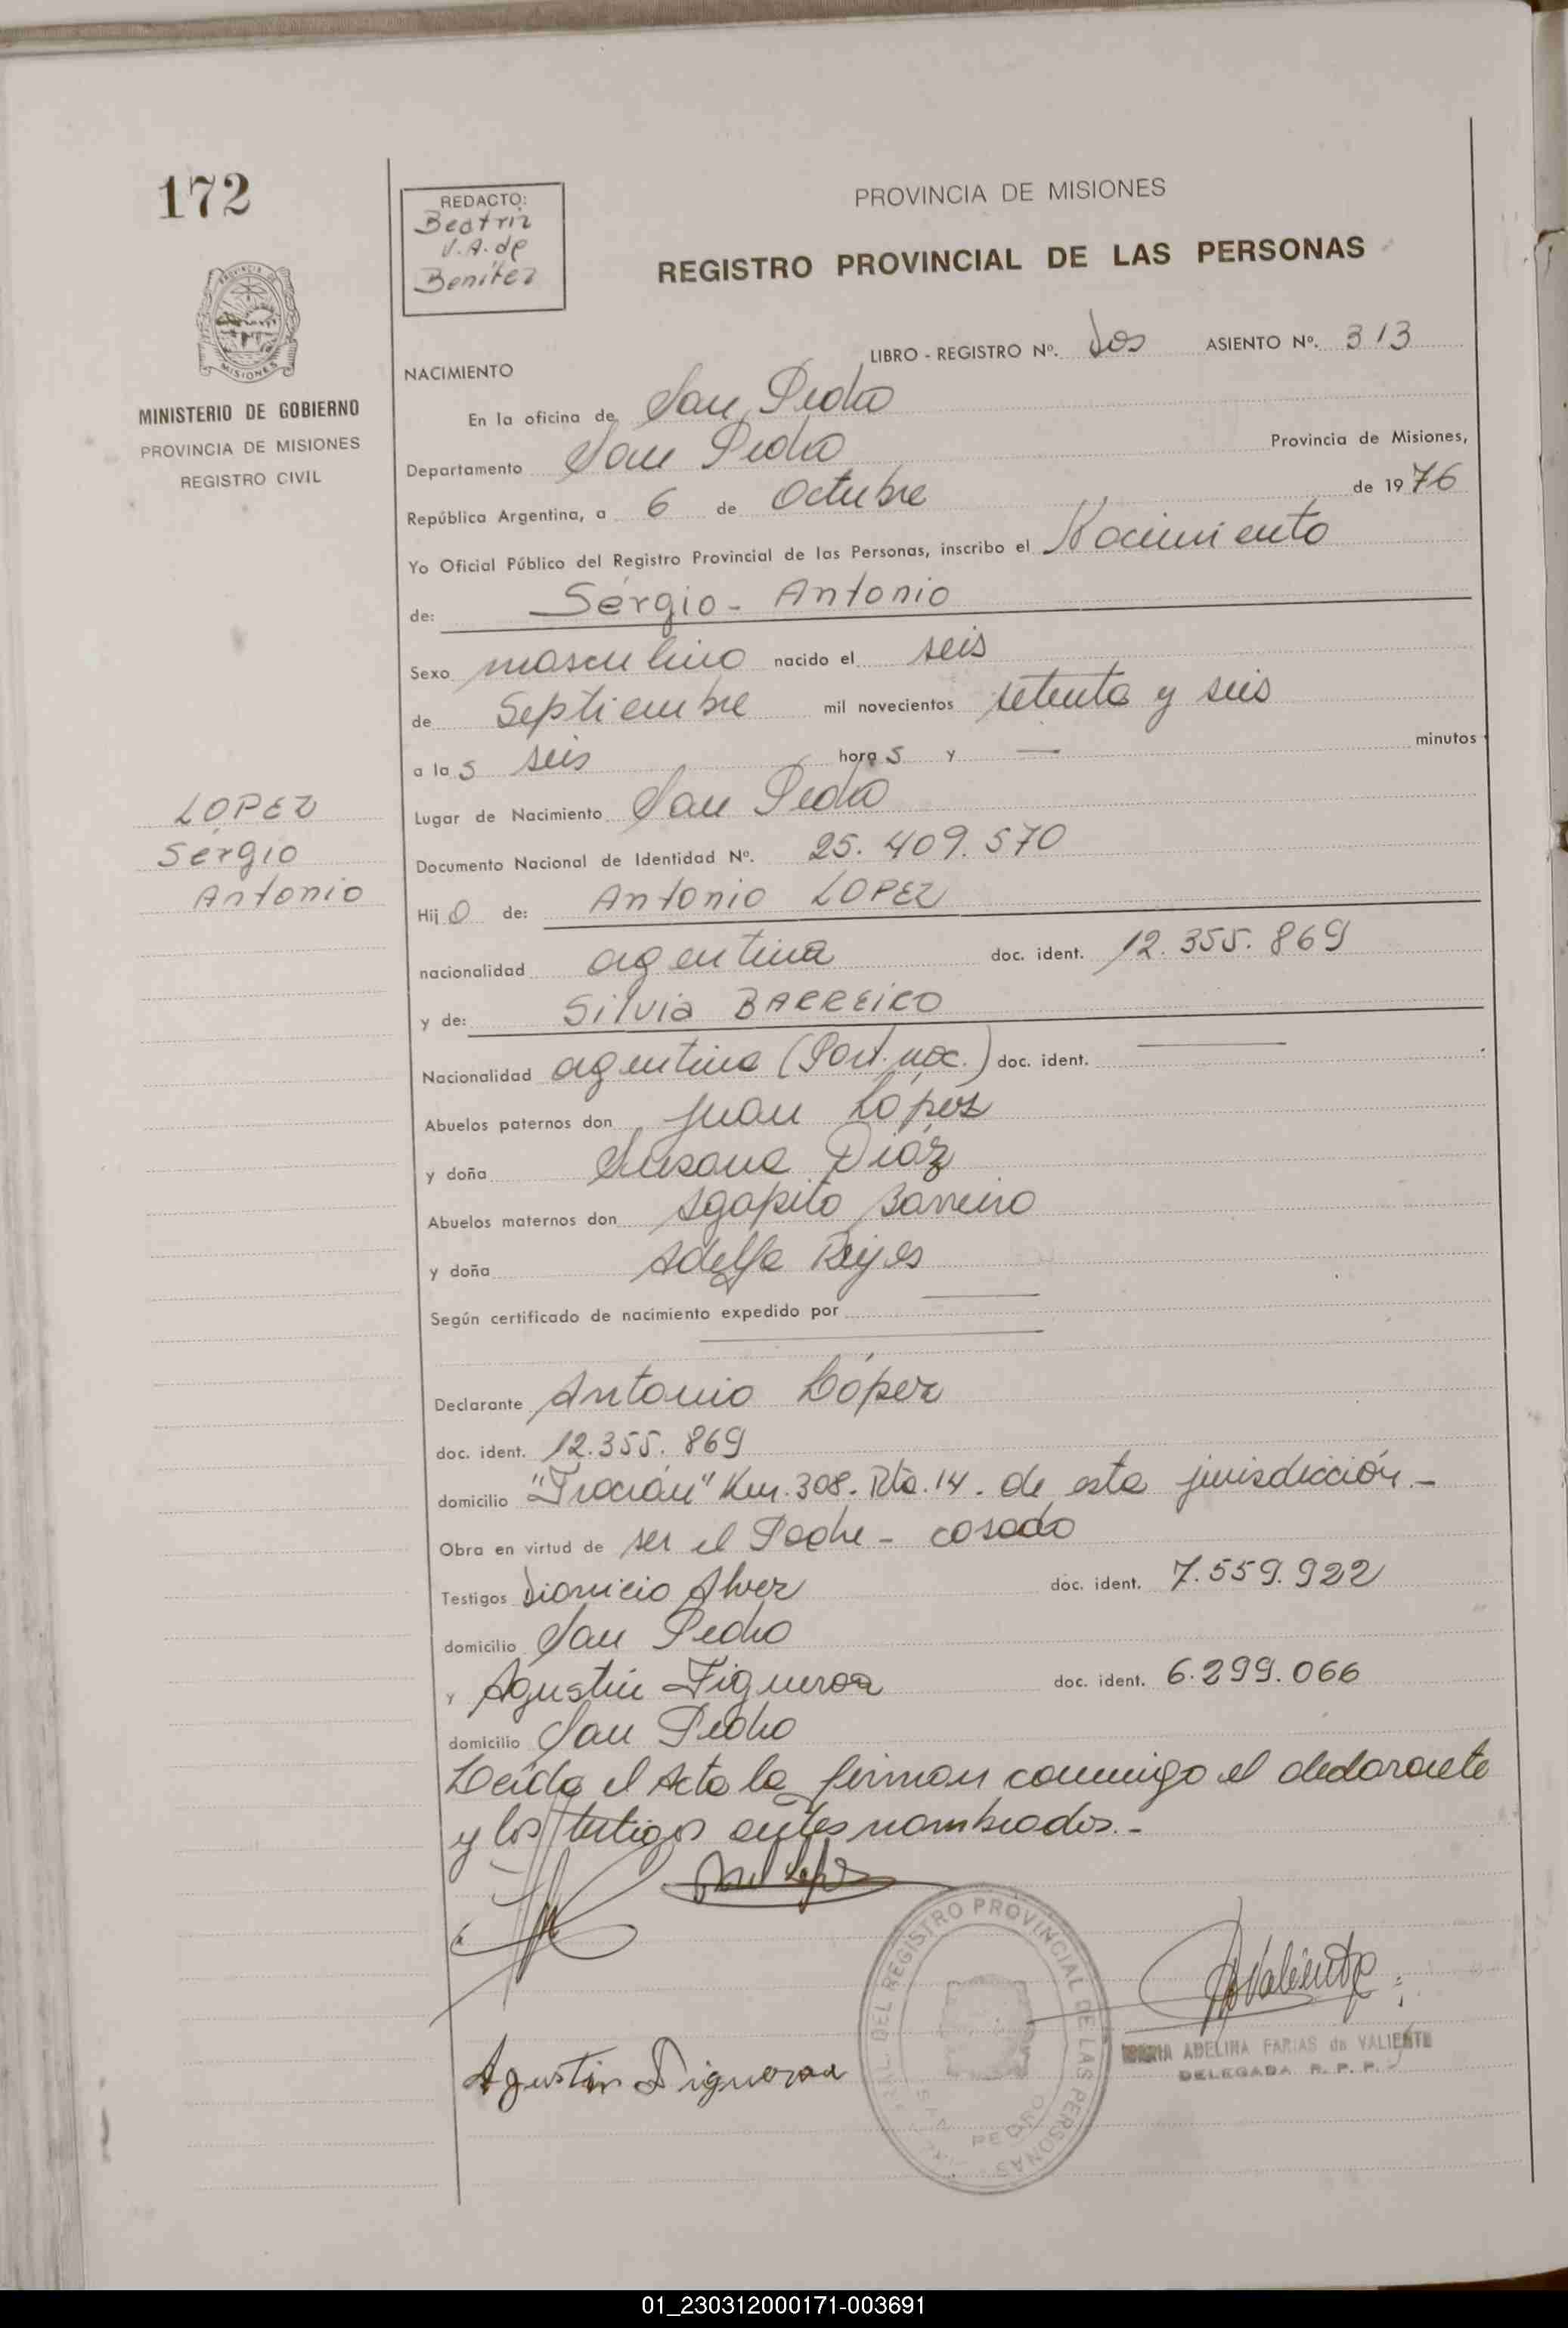 172
REDACTO:
Beatriz
V.A. de
Benítez
PROVINCIA DE MISIONES
REGISTRO PROVINCIAL DE LAS PERSONAS
MINISTERIO DE GOBIERNO
PROVINCIA DE MISIONES
REGISTRO CIVIL
LIBRO - REGISTRO Nº. Dos ASIENTO Nº. 313
NACIMIENTO
En la oficina de San Pedro
Departamento San Pedro Provincia de Misiones,
República Argentina, a 6 de Octubre de 1976
Yo Oficial Público del Registro Provincial de las Personas, inscribo el Nacimiento
de: Sergio - Antonio
Sexo masculino nacido el seis
de Septiembre mil novecientos setenta y seis
a las seis horas y — minutos
LOPEZ
Sergio
Antonio
Lugar de Nacimiento San Pedro
Documento Nacional de Identidad Nº. 25.409.570
Hijo de: Antonio LOPEZ
nacionalidad argentina doc. ident. 12.355.869
y de: Silvia BARREIRO
Nacionalidad argentina (Part. nac.) doc. ident. —
Abuelos paternos don Juan López
y doña Susana Díaz
Abuelos maternos don Agapito Barreiro
y doña Adelfa Reyes
Según certificado de nacimiento expedido por —
Declarante Antonio López
doc. ident. 12.355.869
domicilio Km. 308. Rta. 14. de esta jurisdicción.-
Obra en virtud de ser el Padre - casado
Testigos Dionicio Alvez doc. ident. 7.559.922
domicilio San Pedro
y Agustín Figueroa doc. ident. 6.299.066
domicilio San Pedro
Leída el Acta la firman conmigo el declarante
y los testigos antes nombrados.-
DEL REGISTRO PROVINCIAL DE LAS PERSONAS
SAN PEDRO
Valiente
MARIA ADELINA FARIAS de VALIENTE
DELEGADA R. P. P.
Agustin Figueroa
01_230312000171-003691